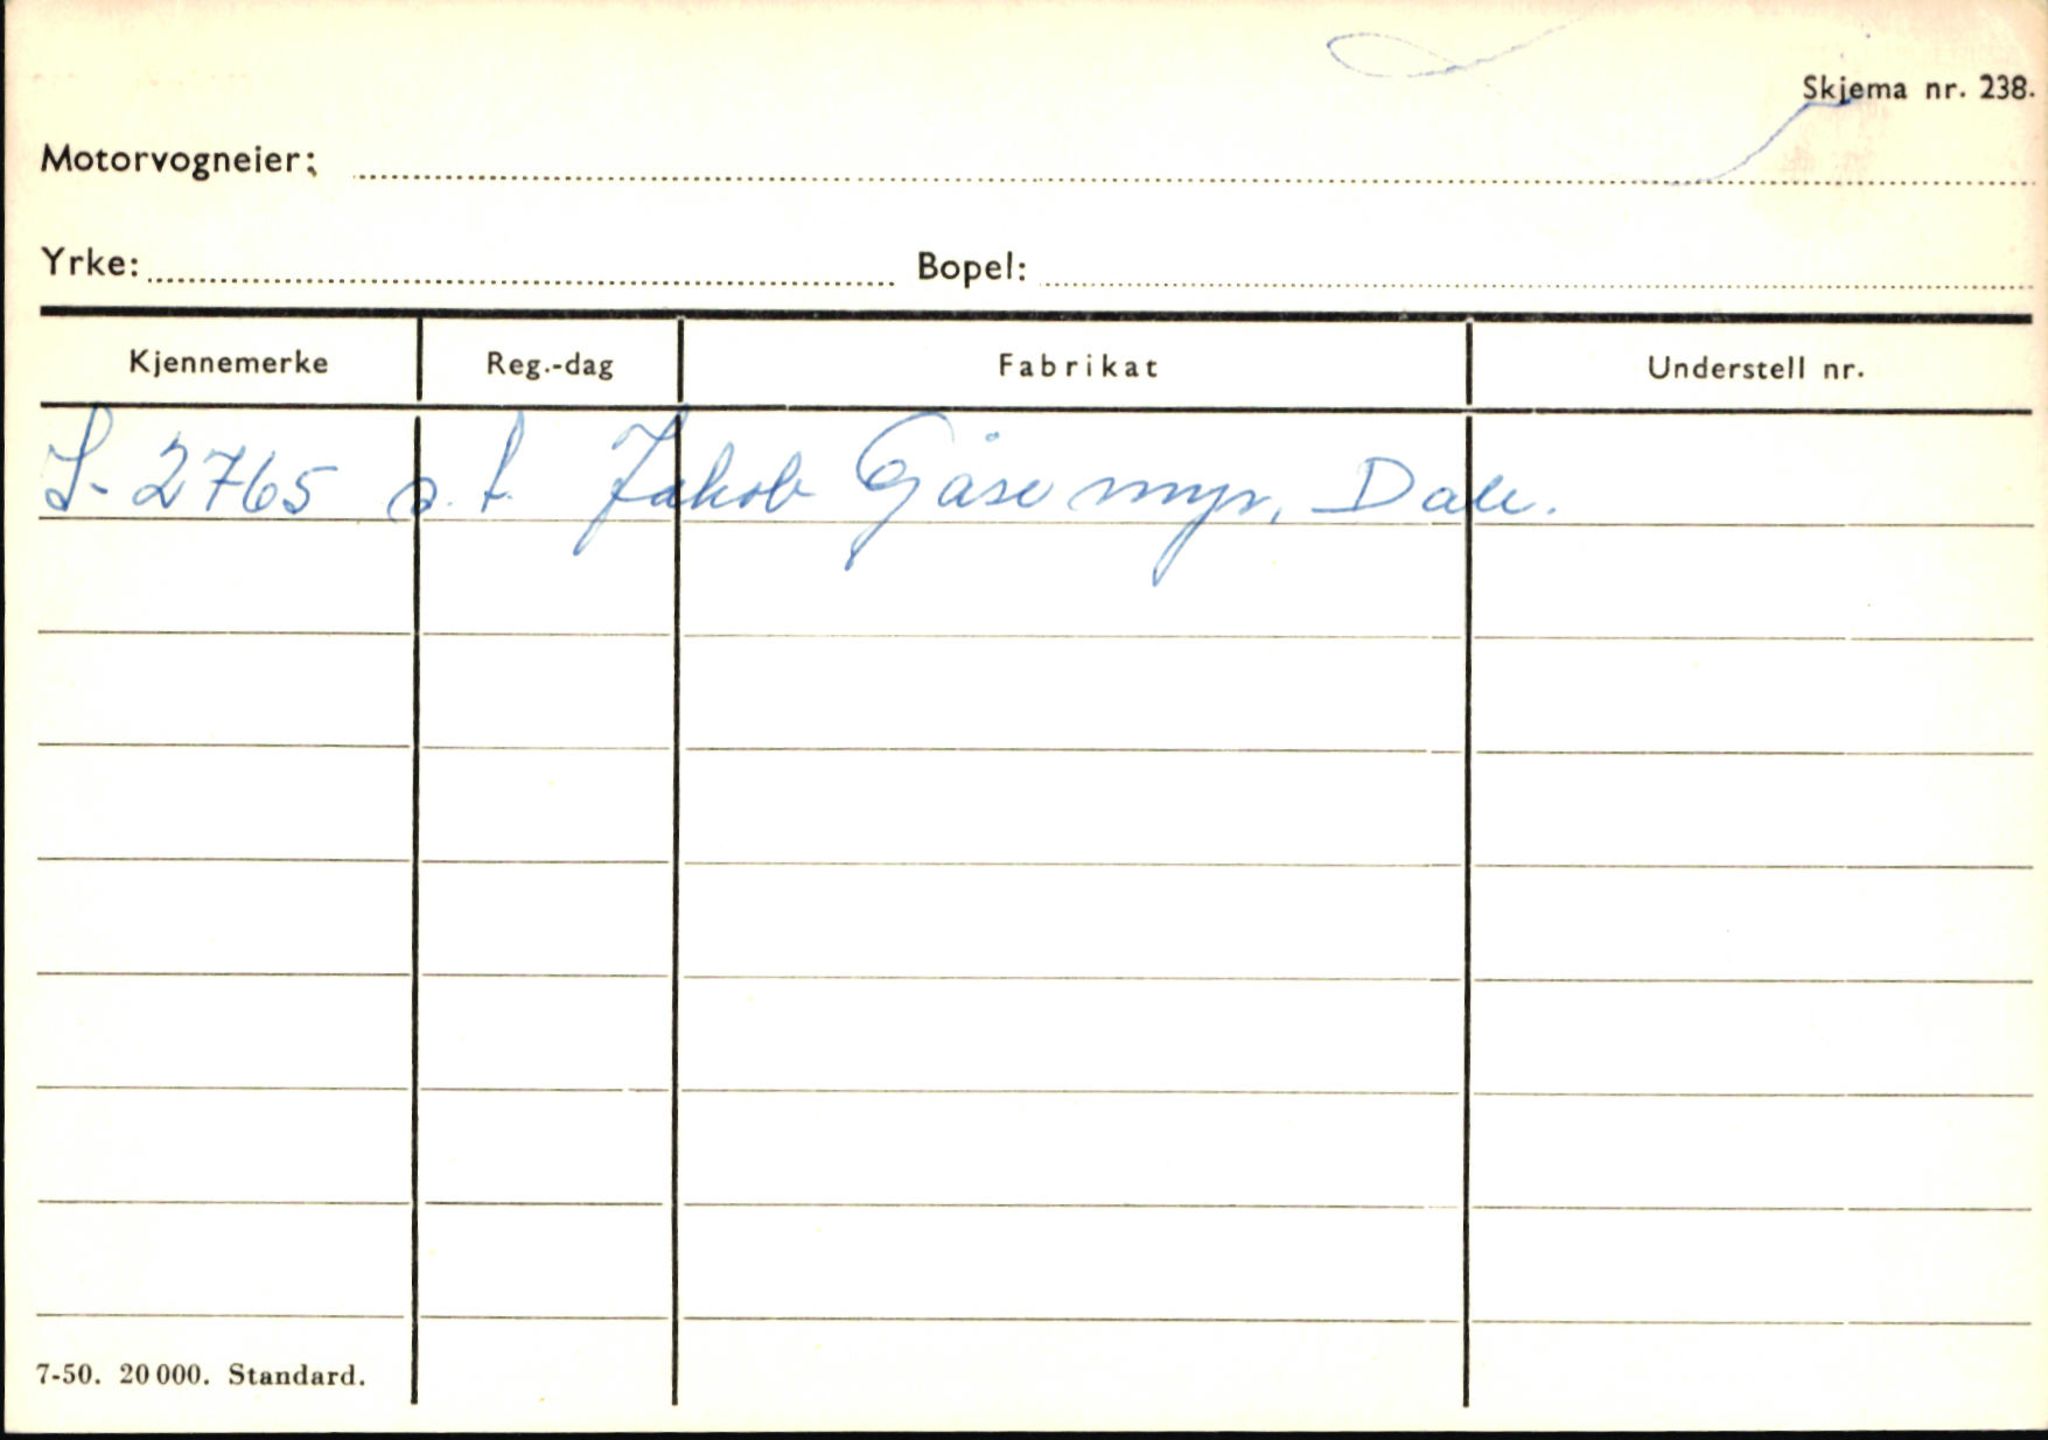 Skjema nr. 238.
Motorvogneier:
Yrke: Bopel:
Kjennemerke Reg.-dag Fabrikat Understell nr.
S-2765 o.f. Jakob Gåsemyr, Dale.
7-50. 20 000. Standard.